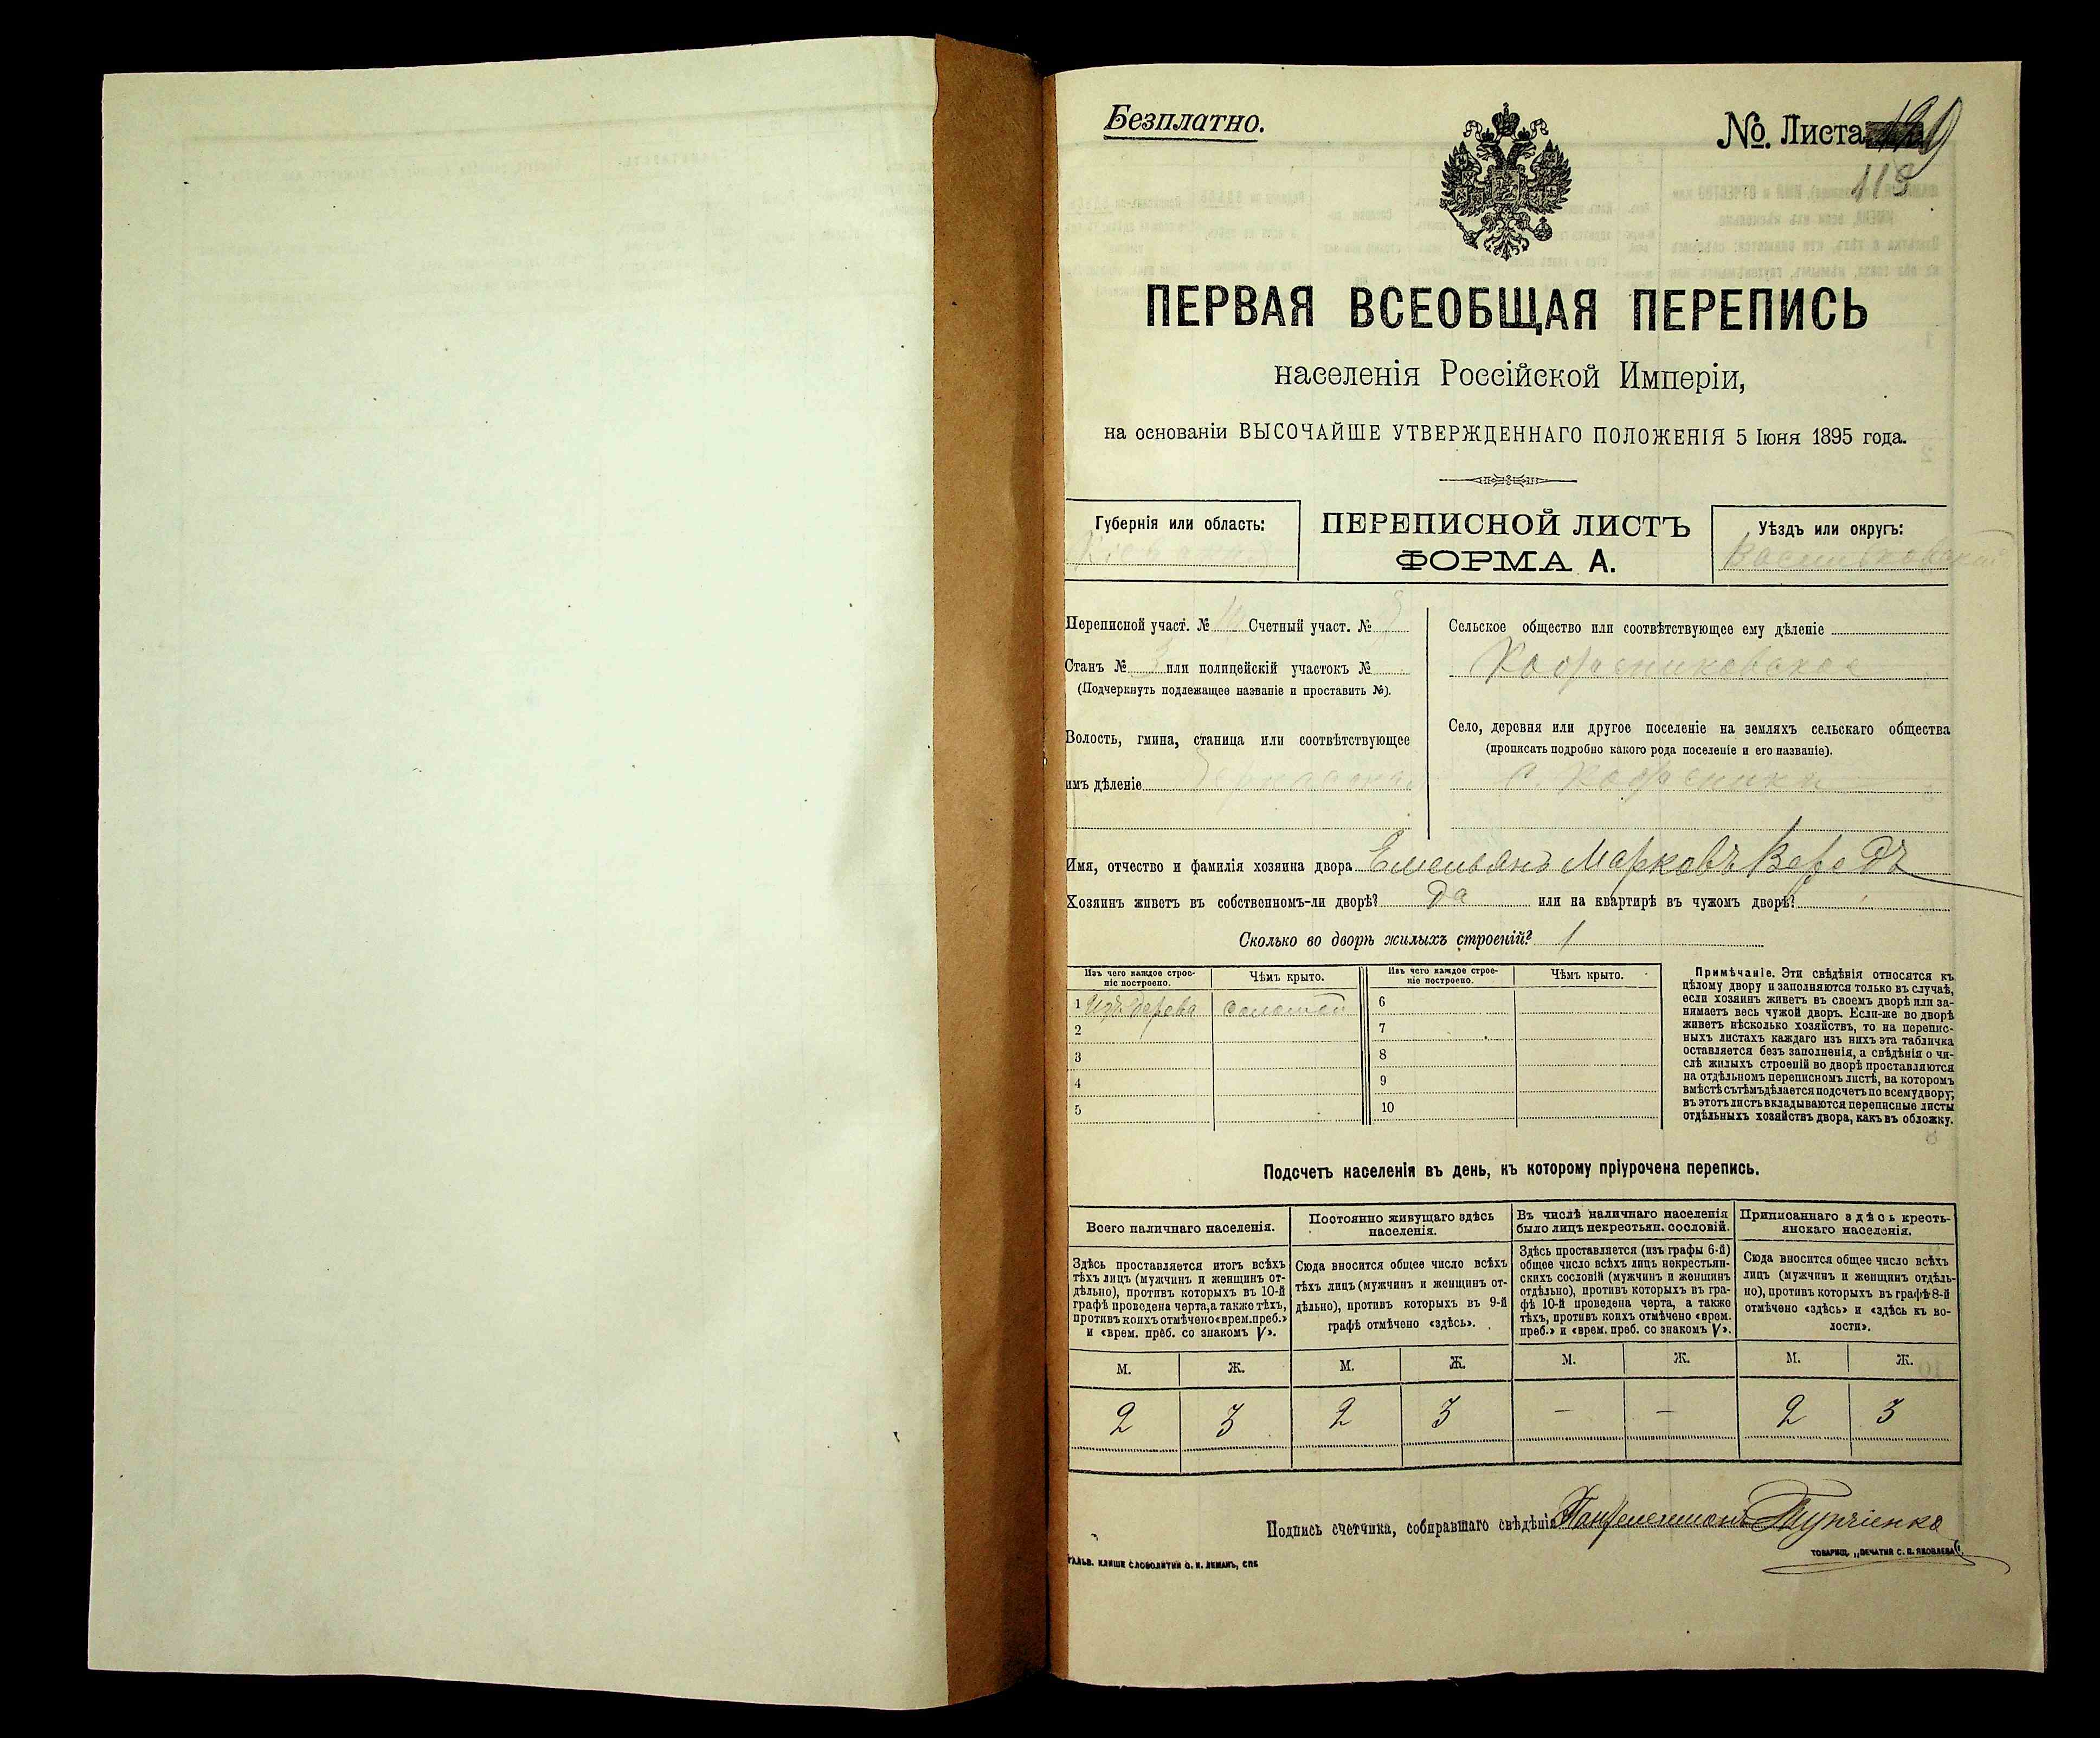 Безплатно.
№. Листа
118
ПЕРВАЯ ВСЕОБЩАЯ ПЕРЕПИСЬ
населенія Россійской Имперіи,
на основаніи ВЫСОЧАЙШЕ УТВЕРЖДЕННАГО ПОЛОЖЕНІЯ 5 Іюня 1895 года.
Губернія или область:
Кіевская
ПЕРЕПИСНОЙ ЛИСТЪ
ФОРМА А.
Уѣздъ или округъ:
Васильковскій
Переписной участ. № Счетный участ. №
Станъ № 3 или полицейскій участокъ №
(Подчеркнуть подлежащее названіе и проставить №).
Волость, гмина, станица или соотвѣтствующее
имъ дѣленіе
Сельское общество или соотвѣтствующее ему дѣленіе
Село, деревня или другое поселеніе на земляхъ сельскаго общества
(прописать подробно какого рода поселеніе и его названіе).
с.
Имя, отчество и фамилія хозяина двора Емельянъ Марковъ Вередъ
Хозяинъ живетъ въ собственномъ-ли дворѣ? да или на квартирѣ въ чужомъ дворѣ?
Сколько во дворѣ жилыхъ строеній? 1
Изъ чего каждое строе-
ніе построено.
Чѣмъ крыто.
Изъ чего каждое строе-
ніе построено.
Чѣмъ крыто.
1 Изъ дерева соломой
2
3
4
5
6
7
8
9
10
Примѣчаніе. Эти свѣдѣнія относятся къ
цѣлому двору и заполняются только въ случаѣ,
если хозяинъ живетъ въ своемъ дворѣ или за-
нимаетъ весь чужой дворъ. Если-же во дворѣ
живетъ нѣсколько хозяйствъ, то на перепис-
ныхъ листахъ каждаго изъ нихъ эта табличка
оставляется безъ заполненія, а свѣдѣнія о чи-
слѣ жилыхъ строеній во дворѣ проставляются
на отдѣльномъ переписномъ листѣ, на которомъ
вмѣстѣ съ тѣмъ дѣлается подсчетъ по всему двору;
въ этотъ листъ вкладываются переписные листы
отдѣльныхъ хозяйствъ двора, какъ въ обложку.
Подсчетъ населенія въ день, къ которому пріурочена перепись.
Всего наличнаго населенія.
Здѣсь проставляется итогъ всѣхъ
тѣхъ лицъ (мужчинъ и женщинъ от-
дѣльно), противъ которыхъ въ 10-й
графѣ проведена черта, а также тѣхъ,
противъ коихъ отмѣчено «врем. преб.»
и «врем. преб. со знакомъ V».
Постоянно живущаго здѣсь
населенія.
Сюда вносится общее число всѣхъ
тѣхъ лицъ (мужчинъ и женщинъ от-
дѣльно), противъ которыхъ въ 9-й
графѣ отмѣчено «здѣсь».
Въ числѣ наличнаго населенія
было лицъ некрестьян. сословій.
Здѣсь проставляется (изъ графы 6-й)
общее число всѣхъ лицъ некрестьян-
скихъ сословій (мужчинъ и женщинъ
отдѣльно), противъ которыхъ въ гра-
фѣ 10-й проведена черта, а также
тѣхъ, противъ коихъ отмѣчено «врем.
преб.» и «врем. преб. со знакомъ V».
Приписаннаго здѣсь кресть-
янскаго населенія.
Сюда вносится общее число всѣхъ
лицъ (мужчинъ и женщинъ отдѣль-
но), противъ которыхъ въ графѣ 8-й
отмѣчено «здѣсь» и «здѣсь къ во-
лости».
М. Ж. М. Ж. М. Ж. М. Ж.
2 3 2 3 — — 2 3
Подпись счетчика, собиравшаго свѣдѣнія
ГАЛЬВ. КЛИШЕ СЛОВОЛИТНИ О. И. ЛЕМАНЪ, СПБ
ТОВАРИЩ. „ПЕЧАТНЯ С. П. ЯКОВЛЕВА"